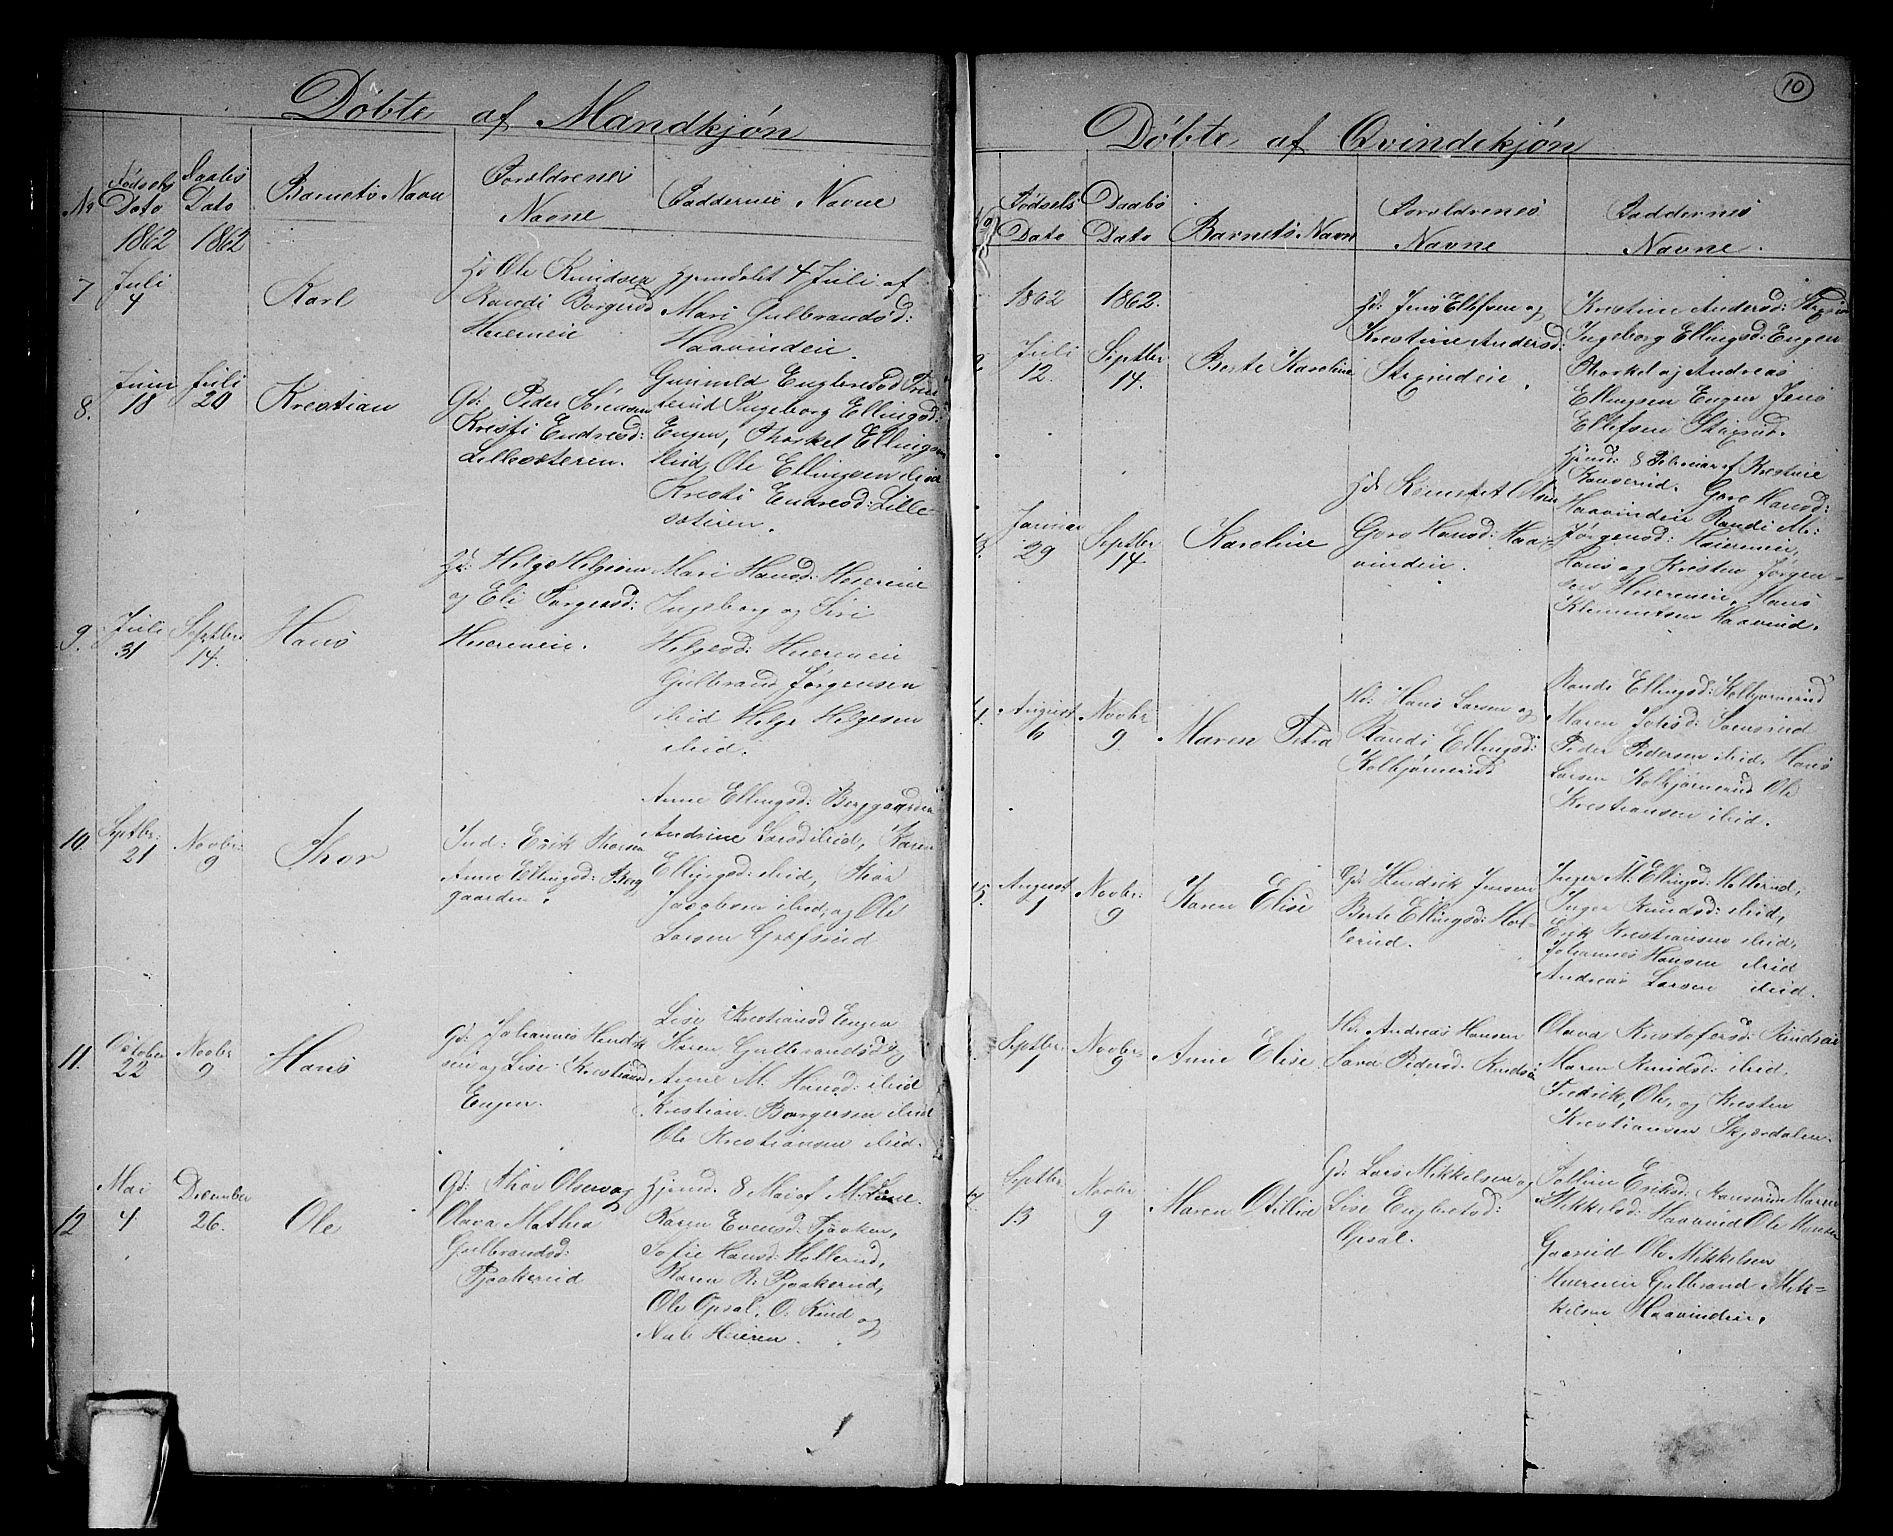 Døbte af Mandkjøn
No
Fødsels
Dato
1862
Daabs
Dato
1862
Barnets Navn
Forældrenes
Navne
Faddernes Navne
7
Juli
4
Karl
Hd Ole Knudsen
Randi Borgersd
Heiereneie
Hjemdøbt 4 Juli af
Mari Gulbrandsd:
Haavindeie.
8.
Juni
18
Juli
20
Kristian
Gd: Peder Sørensen
Kristi Endresd:
Lillesæteren.
Gunild Englbretsd
Ingeborg Ellingsd:
Engen, Thorkel Ellingsen
ibid, Ole Ellingsen ibid
Kristi Endresd: Lille-
sæteren.
9.
Juli
31
Septbr
14.
Hans
Hd: Helge Helgesen
og Eli Torgersd:
Heiereneie.
Mari Hansd: Heiereneie
Ingeborg og Siri
Helgesd: Heiereneie
Gulbrand Jørgensen
ibid Helge Helgesen
ibid.
10.
Septbr:
21
Novbr:
9
Thor
Ind: Erik Thorsen
Anne Ellingsd: Berg
gaarden.
Anne Ellingsd: Berggaarden
Andrine Larsd ibid, Karen
Ellingsd: ibid, Thor
Jacobsen ibid, og Ole
Larsen Grefsrud
11.
October
22
Novbr
9
Hans
Gd: Johannes Hendrik
sen og Lise Kristiansd
Engen.
Lise Kristiansd Engen
Karen Gulbrandsd og
Anne M. Hansd: ibid
Kristian Borgersen ibid
Ole Kristiansen ibid.
12
Mai
4
December
26.
Ole
Gd: Thor Olsen og
Olava Mathea
Gulbrandsd:
Pjaakerud
Hjemd. 8 Mai af
Karen Evensd: Pjaaker,
Sofie Hansd: Hollerud,
Karen R. Pjaakerud,
Ole Opsal, O. Rud og
Heieren.
10
Døbte af Qvindekjøn
No
Fødsels
Dato
Daabs
Dato
Barnets Navn
Forældrenes
Navne
Faddernes
Navne.
1862
1862.
Juli
12.
Septbr
14.
Berte Karoline
Hd: Jens Ellefsen og
Kristine Andersd:
Strandeie.
Kristine Andersd:
Ingeborg Ellingsd: Engen
Thorkel og Andreas
Ellingsen Engen Jens
Ellefsen
Januar
29
Septbr
14
Karoline
Hd: Klemet Olsen
Goro Hansd: Haa-
vindeie.
Hjemd: 8 Februar af Kristine
Goro Hansd:
Haavindeie Randi M:
Jørgensd: Heiereneie,
Hans og Kristen Jørgen-
sen Heiereneie, Hans
Klementsen Haavind.
4.
August
6
Novbr
9
Maren Petra
Hd: Hans Larsen og
Randi Ellingsd:
Kolbjørnerud
Randi Ellingsd: Kolbjørnerud
Maren
Peder Pedersen ibid, Hans
Larsen Kolbjørnerud Ole
Kristiansen ibid.
5.
August
1
Novbr:
9
Karen Elise
Gd Hendrik Jensen
Berte Ellingsd: Hol-
lerud.
Inger M. Ellingsd: Hollerud,
Inger Knudsd: ibid,
Erik Kristiansen ibid,
Johannes Hansen ibid
Andreas Larsen ibid.
Septbr
1
Novbr:
9
Anne Elise
Hd: Andreas Hansen
Sara Pedersd.
Olava Kristofersd:
Maren Knudsd: ibid.
Fredrik, Ole, og Kristen
Kristiansen Skjærdalen.
Septbr
13
Novbr
9
Maren Otillie
Gd: Lars Mikkelsen og
Lise Englbretsd:
Opsal.
Eriksd: Maren
Mikkelsd: Haavind Ole Hansen
Gaarud Ole Mikkelsen
Heiereneie Gulbrand Mik-
kelsen Haavindeie.